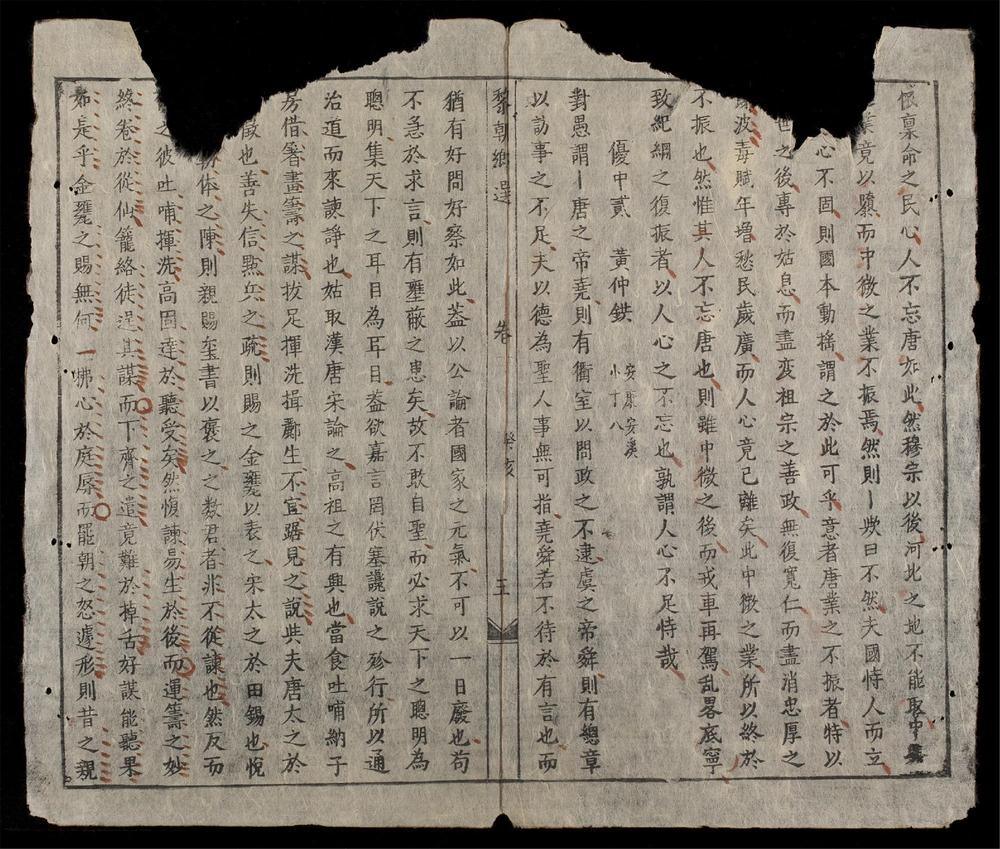 懷禀命之民心人不忘唐如此然穆宗以後河北之地不能取中
業竟以隳而中微之業不振焉然則丨𤼵曰不然夫國恃人而立
心不固則國本動搖謂之於此可乎意者唐業之不振者特以
世之後專於姑息而盡变祖宗之善政無復寬仁而盡消忠厚之
波毒賦年増愁民歲廣而人心竟已離矣此中微之業所以終於
不振也然惟其人不忘唐也則雖中微之後而戎車再駕乱畧底寧
致紀綱之復振者以人心之不忘也孰謂人心不足恃哉
優中貳 黃仲鉄 安康安溪 小丁八
對愚謂丨唐之帝堯則有衢室以問政之不逮虞之帝舜則有緫章
以訪事之不足夫以德為聖人事無可指堯舜若不待於有言也而
黎朝鄉選 卷 癸亥 三
猶有好問好察如此葢以公論者國家之元氣不可以一日廢也茍
不急於求言則有壅蔽之患矣故不敢自聖而必求天下之聰明為
聰明集天下之耳目為耳目葢欲嘉言罔伏塞讒說之殄行所以通
治道而來諫諍也姑取漢唐宋論之高祖之有興也當食吐哺納子
房借箸畫籌之謀拔足揮洗揖酈生不宜踞見之說𤼵夫唐太之於
徵也善失信㸃兵之疏則賜之金甕以表之宋太之於田錫也悅
体之陳則親賜玺書以褒之之数君者非不從諫也然反而
之彼吐哺揮洗高固達於聽受矣然愎諫易生於後而運籌之妙
終卷於從仙籠絡徒逞其謀而下齊之遣竟難於掉舌好謀能聽果
如是乎金甕之賜無何一拂心於庭辱而罷朝之怒遽形則昔之親